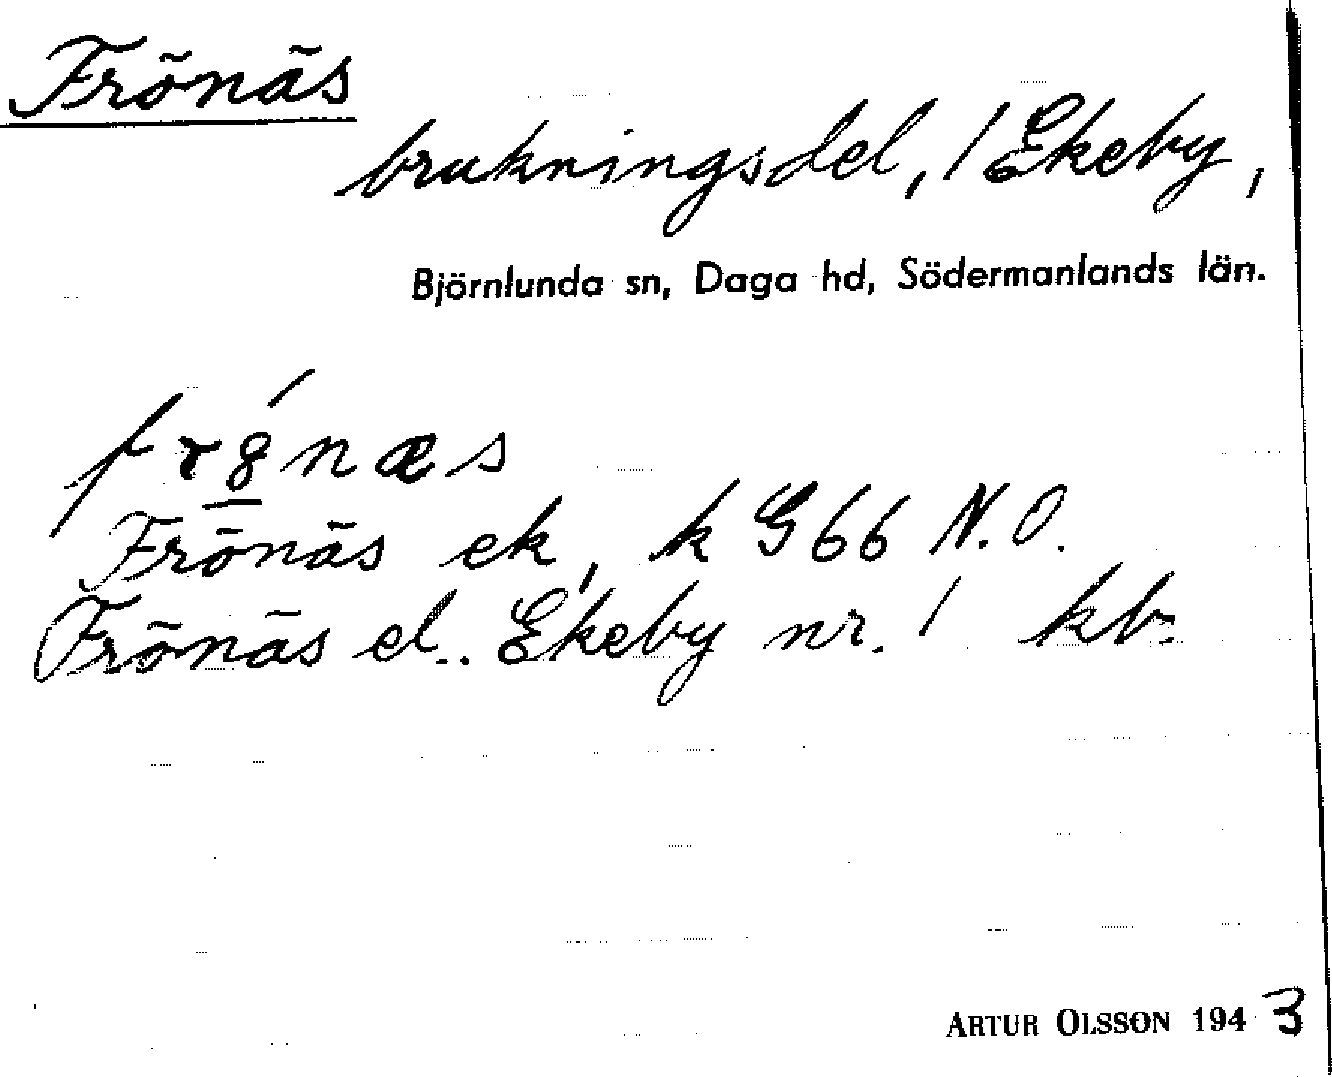 Frönäs
brukningsdel, 1 Ekeby,
Björnlunda sn, Daga hd, Södermanlands län.
Frönäs ek, k G66 N.O.
Frönäs el. Ekeby nr. 1 kb.
ARTUR OLSSON 1943